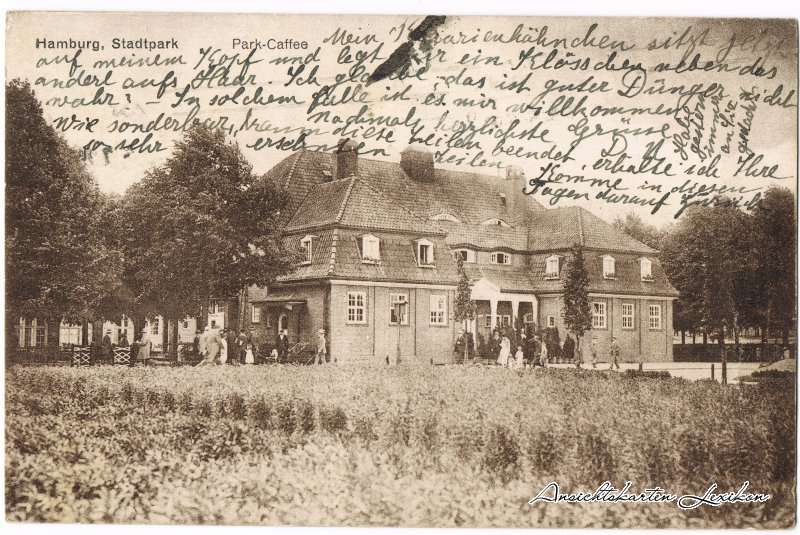 Hamburg, Stadtpark
Park-Caffee
Mein Kanarienhähnchen sitzt jetzt
auf meinem Kopf und legt mir ein Klösschen neben das
andere aufs Haar. Ich glaube, das ist guter Dünger, nicht
wahr? – In solchem Falle ist es mir willkommen.
Wie sonderbar, kaum diese Zeilen beendet, erhalte ich Ihre
so sehr ersehnten Zeilen.
Nochmals herzlichste Grüsse
D. M.
Komme in diesen
Tagen darauf zurück
Habe
gestern
immer
an Sie
gedacht
Ansichtskarten Lexikon